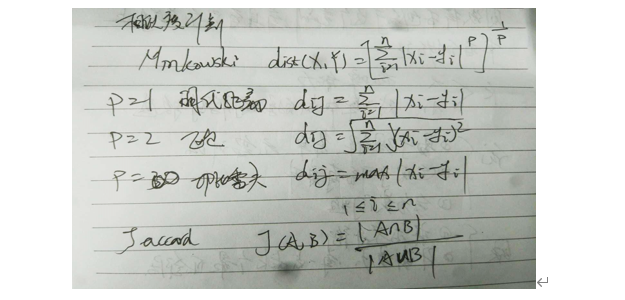 相似度计算
Minkowski dist(X,Y) = [∑_{i=1}^{n} |xi-yi|^p]^{1/p}
p=1 dij = ∑_{i=1}^{n} |xi-yi|
p=2 dij = √∑_{i=1}^{n} (xi-yi)²
p= dij = max |xi-yi|
1≤i≤n
Jaccard J(A,B) = |A∩B| / |A∪B|